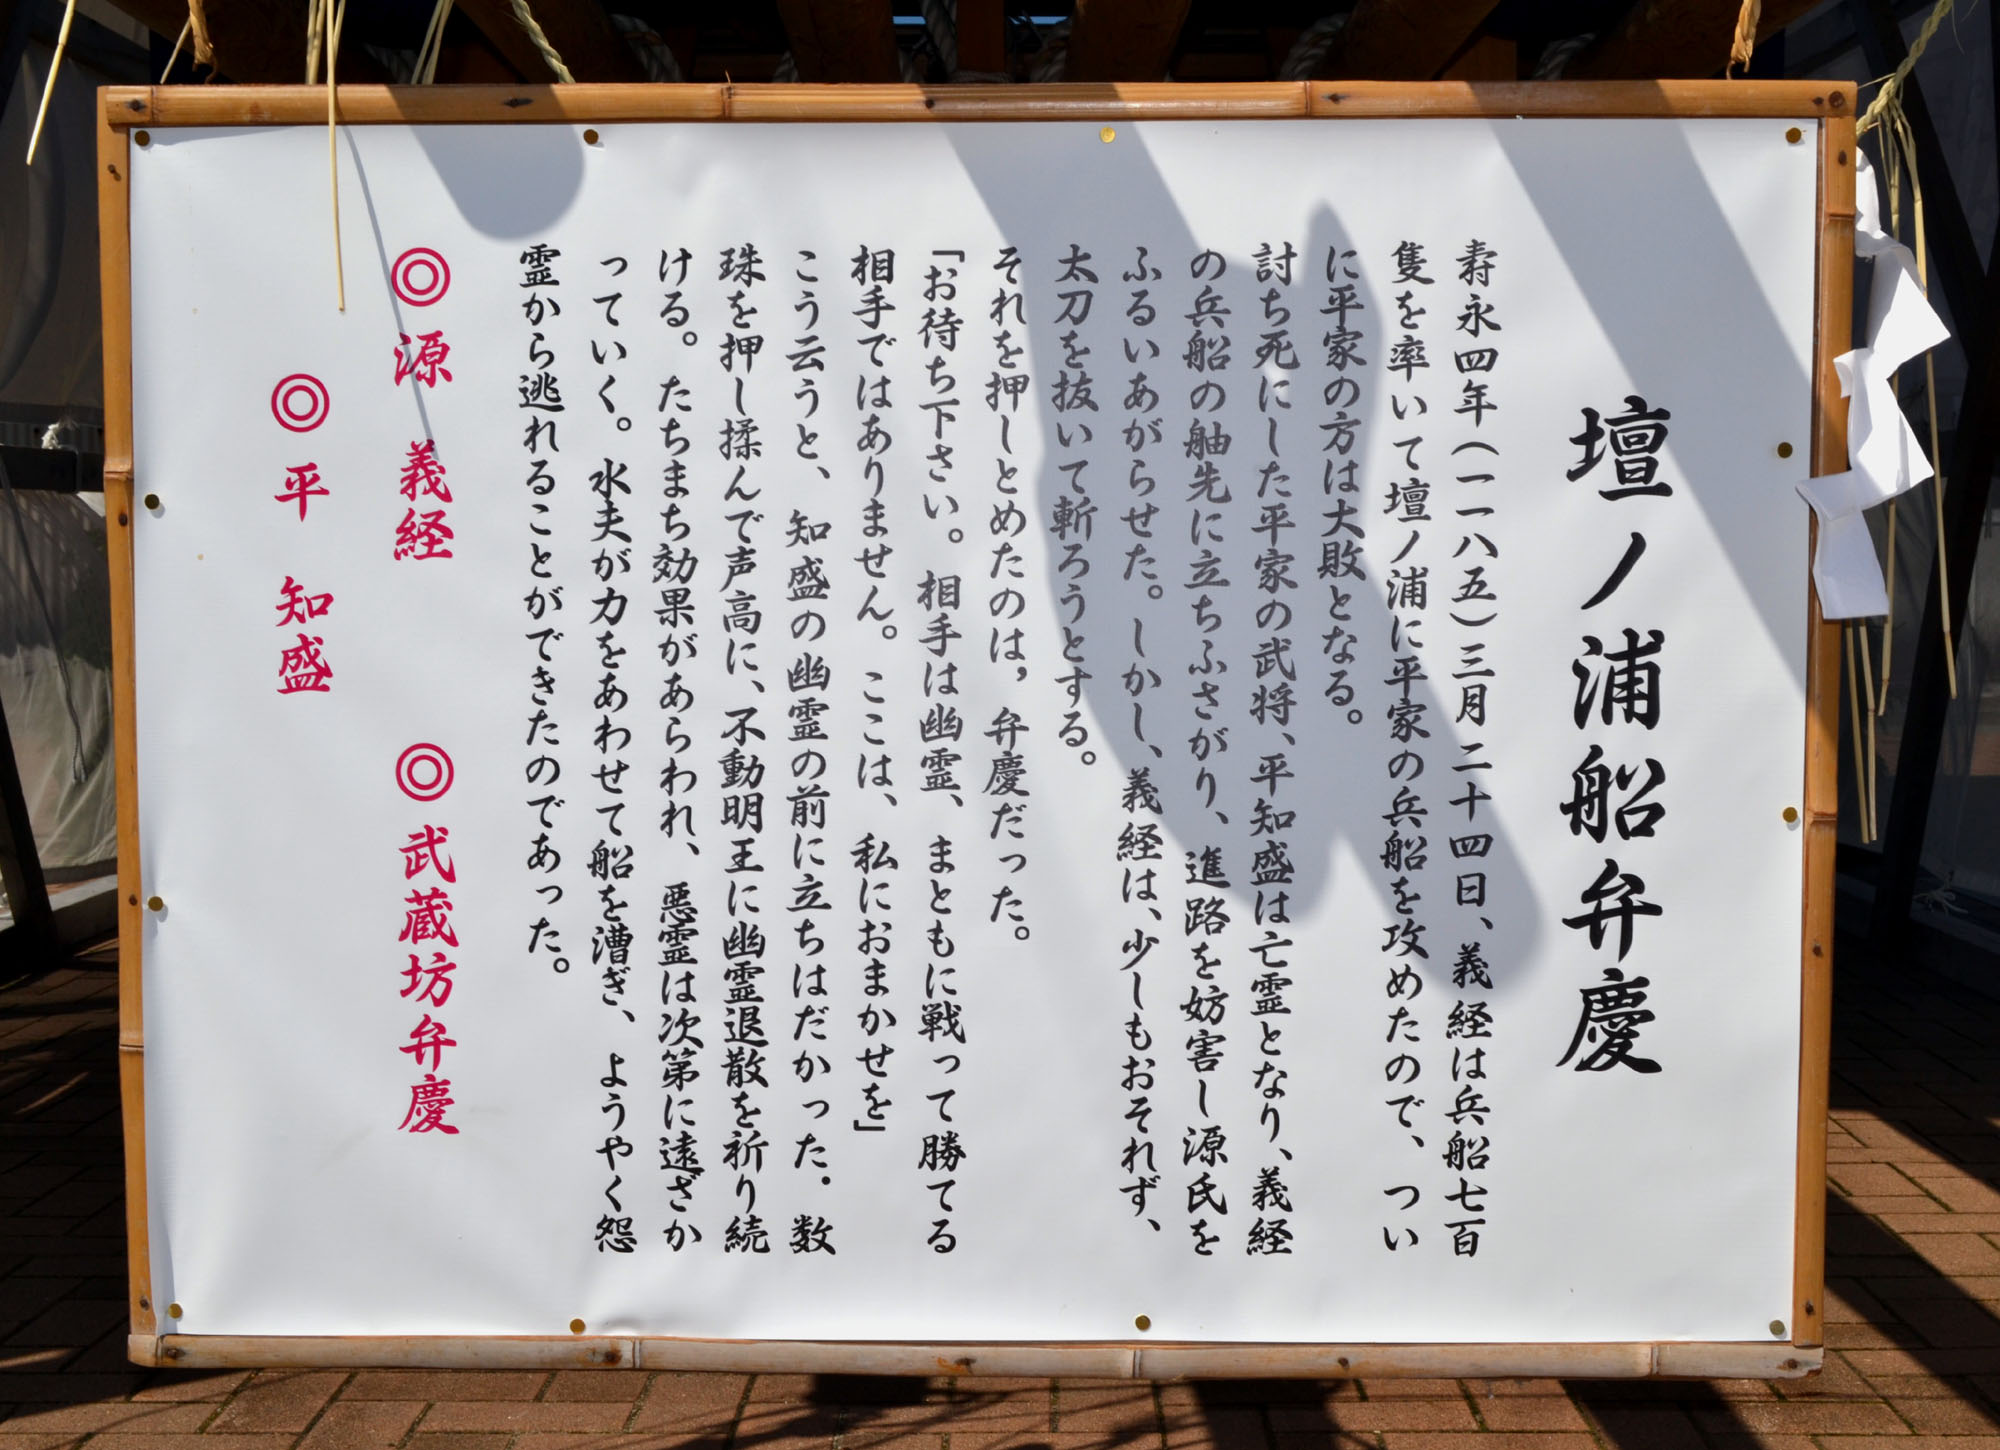 壇ノ浦船弁慶
寿永四年(一一八五)三月二十四日、義経は兵船七百
隻を率いて壇ノ浦に平家の兵船を攻めたので、つい
に平家の方は大敗となる。
討ち死にした平家の武将、平知盛は亡霊となり、義経
の兵船の舳先に立ちふさがり、進路を妨害し源氏を
ふるいあがらせた。しかし、義経は、少しもおそれず、
太刀を抜いて斬ろうとする。
それを押しとめたのは,弁慶だった。
「お待ち下さい。相手は幽霊、まともに戦って勝てる
相手ではありません。ここは、私におまかせを」
こう云うと、知盛の幽霊の前に立ちはだかった。数
珠を押し揉んで声高に、不動明王に幽霊退散を祈り続
ける。たちまち効果があらわれ、悪霊は次第に遠ざか
っていく。水夫が力をあわせて船を漕ぎ、ようやく怨
霊から逃れることができたのであった。
◎源 義経 ◎武蔵坊弁慶
◎平 知盛